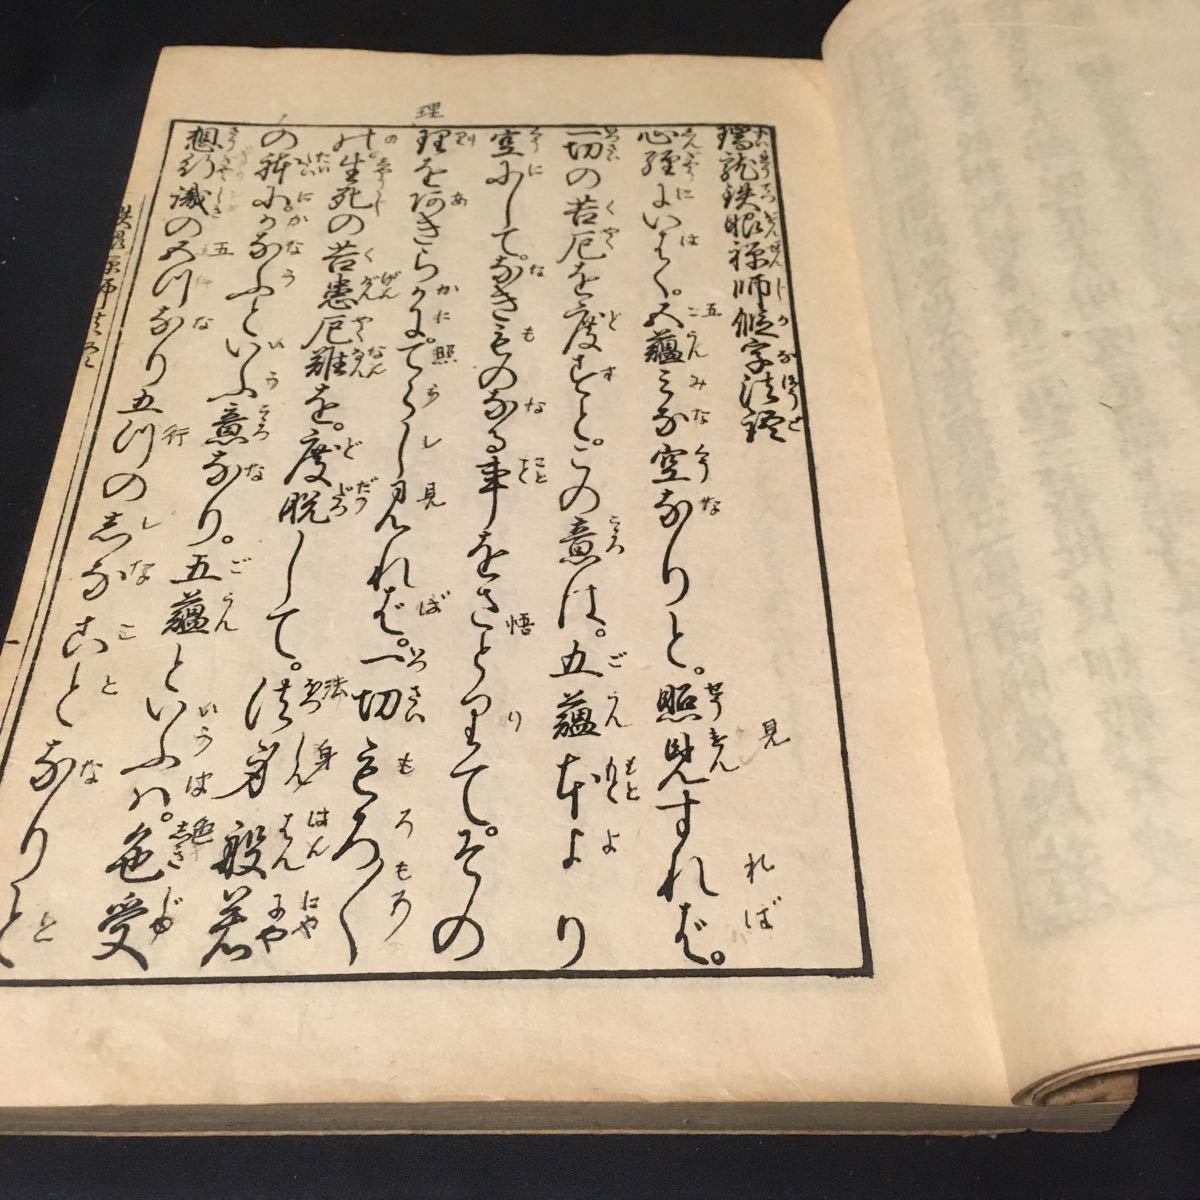 瑞龍鉄眼禅師仮字法語
心経にいはく。五蘊みな空なりと。照見すれば。
一切の苦厄を度すと。この意は。五蘊本より
空にして。なきものなる事をさとりて。その
理をあきらかにてらし見れば。一切もろ〳〵
の。生死の苦患厄難を。度脱して。法身般若
の体にかなふといふ意なり。五蘊といふハ。色受
想行識の五つなり五つのしなことなりと
理
鉄眼禅師法語